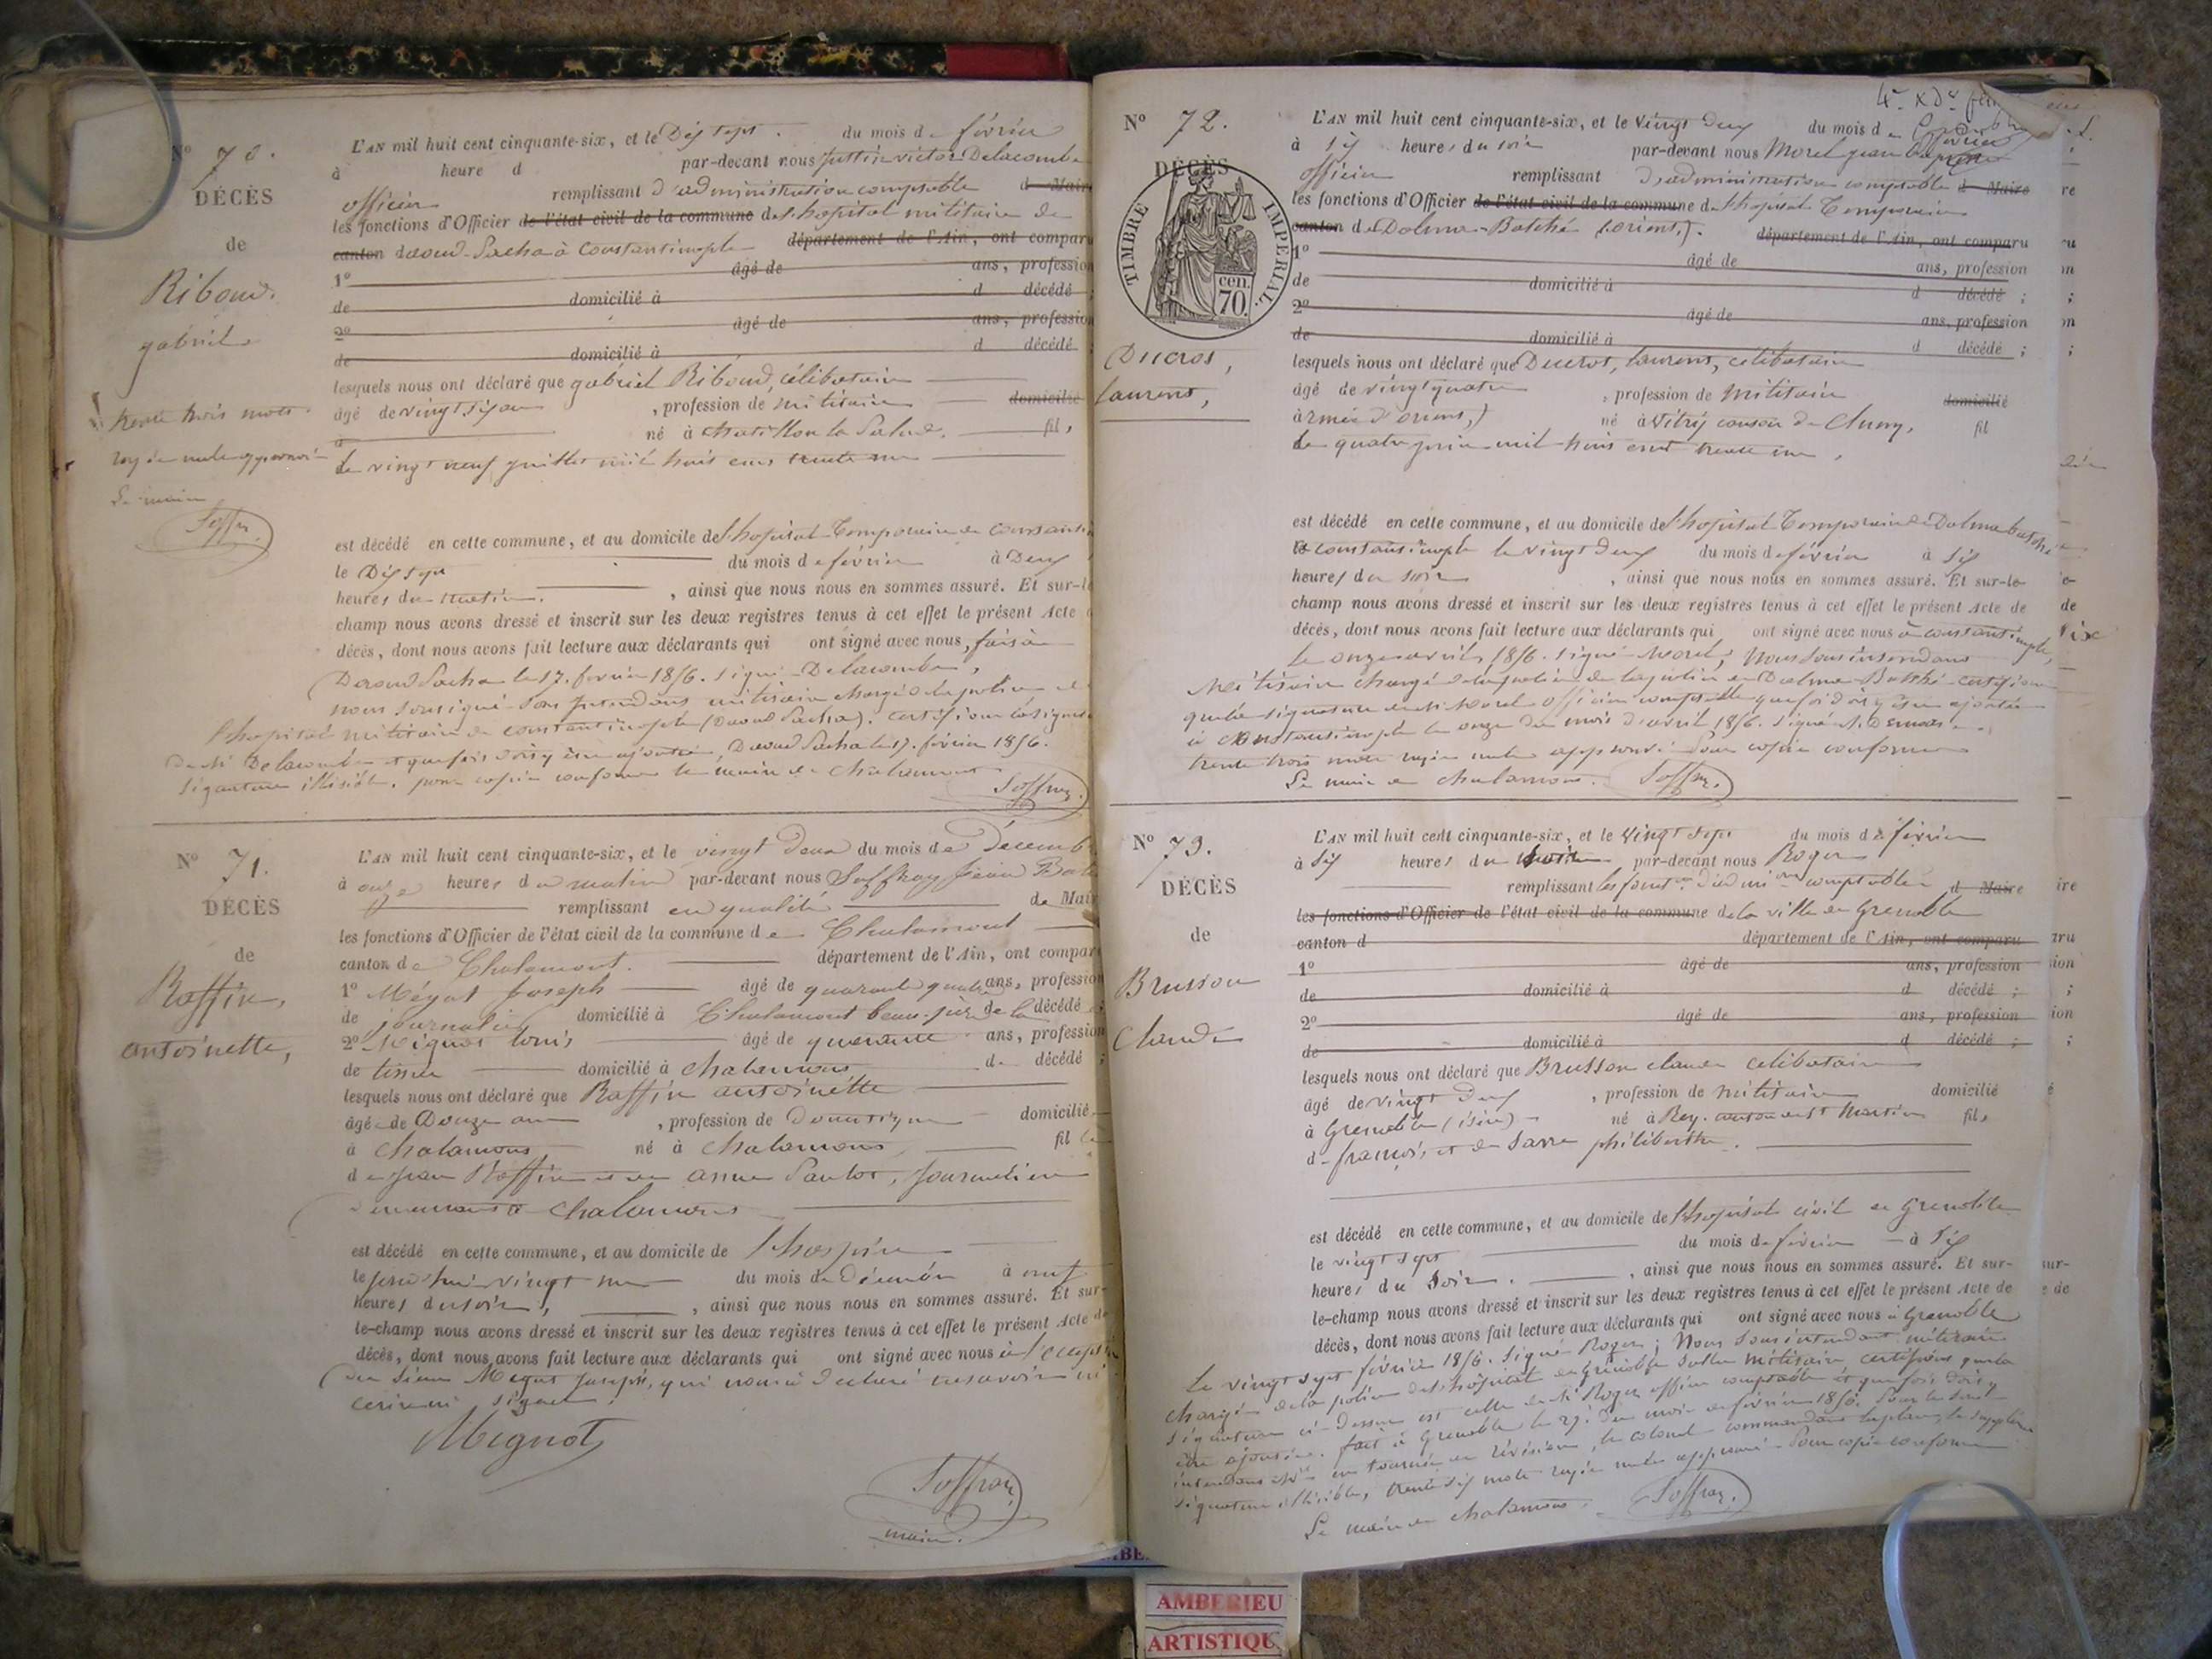 N° 70.
DÉCÈS
de
Riboud
gabriel
trente trois mots
rayés nuls approuvé
Le maire
Soffray
L'AN mil huit cent cinquante-six, et le Dix sept du mois de février
à heure d par-devant nous Justin victor Delacombe
officier remplissant d'administration comptable d Maire
les fonctions d'Officier de l'état civil de la commune de l'hopital militaire de
canton daoud-Pacha à Constantinople département de l'Ain, ont comparu
1° âgé de ans, profession
de domicilié à d décédé
2° âgé de ans, profession
de domicilié à d décédé
lesquels nous ont déclaré que gabriel Riboud, célibataire
âgé de vingt six ans, profession de militaire domicilié
à né à chatillon la Palud, fils
Le vingt neuf juillet mil huit cent trente
est décédé en cette commune, et au domicile de l'hopital Temporaire de Constantinople
le Dix sept du mois de février à Deux
heures du matin, ainsi que nous nous en sommes assuré. Et sur-le
champ nous avons dressé et inscrit sur les deux registres tenus à cet effet le présent Acte d
décès, dont nous avons fait lecture aux déclarants qui ont signé avec nous, fait à
Daoud Pacha le 17. février 1856. signé Delacombe,
nous soussigné sous Intendant militaire chargé de la police de
l'hopital militaire de constantinople (Daoud Pacha). certifions la signature
de Mr Delacombe et que foi doit y être ajoutée, Daoud Pacha le 17. février 1856.
signature illisible. pour copie conforme le maire de chalamont
Soffray
N° 71.
DÉCÈS
de
Raffin,
antoinette,
L'AN mil huit cent cinquante-six, et le vingt deux du mois de Décembre
à onze heures du matin par-devant nous Soffray Jean Bat
remplissant en qualité de Maire
les fonctions d'Officier de l'état civil de la commune de Chalamont
canton de Chalamont. département de l'Ain, ont comparu
1° Mégat Joseph âgé de quarante quatre ans, profession
de journalier domicilié à Chalamont beau-père de la décédé
2° Mignot louis âgé de quarante ans, profession
de tissier domicilié à chalamont d décédé ;
lesquels nous ont déclaré que Raffin antoinette
âgée de Douze ans, profession de Domestique domicilié
à chalamont né à chalamont fil le
de jean Raffin et de anne Pautot, journaliers
demeurant à chalamont
est décédé en cette commune, et au domicile de l'hospice
le jour hier vingt un du mois de Décembre à neuf
heures du soir, ainsi que nous nous en sommes assuré. Et sur-
le-champ nous avons dressé et inscrit sur les deux registres tenus à cet effet le présent Acte de
décès, dont nous avons fait lecture aux déclarants qui ont signé avec nous à l'exception
du sieur Mégat Joseph, qui nous a déclaré ne savoir ni
écrire ni signer.
Mignot
Soffray
maire.
N° 72.
DÉCÈS
TIMBRE IMPÉRIAL.
cen. 70.
Ducros,
laurent,
L'AN mil huit cent cinquante-six, et le vingt deux du mois de février
à six heures du soir par-devant nous Morel jean
officier remplissant d'administration comptable d Maire
les fonctions d'Officier de l'état civil de la commune de l'hopital Temporaire
canton de Dolma-Batché (orient). département de l'Ain, ont comparu
1° âgé de ans, profession
de domicilié à d décédé ;
2° âgé de ans, profession
de domicilié à d décédé ;
lesquels nous ont déclaré que Ducrot, laurent, célibataire
âgé de vingt quatre, profession de militaire domicilié
armée d'orient,) né à Vitry canton de Cluny, fil
Le quatre juin mil huit cent trente un,
est décédé en cette commune, et au domicile de l'hopital Temporaire de Dolmabatché
à constantinople le vingt deux du mois de février à six
heures du soir, ainsi que nous nous en sommes assuré. Et sur-le-
champ nous avons dressé et inscrit sur les deux registres tenus à cet effet le présent Acte de
décès, dont nous avons fait lecture aux déclarants qui ont signé avec nous à constantinople,
le onze avril 1856. signé Morel, Nous sous intendant
Militaire chargé de la police de Dolma-Batché certifions
que la signature de Mr Morel officier comptable que foi doit y être ajoutée
à Constantinople le onze du mois d'avril 1856.
trente trois mots rayés nuls approuvé. Pour copie conforme
Le maire de chalamont. Soffray.
N° 73.
DÉCÈS
de
Brusson
Claude
L'AN mil huit cent cinquante-six, et le vingt sept du mois de février
à six heures du soir par-devant nous Roger
remplissant les fonct.ons d'admi.on comptable d Maire
les fonctions d'Officier de l'état civil de la commune de la ville de Grenoble
canton d département de l'Ain, ont comparu
1° âgé de ans, profession
de domicilié à d décédé ;
2° âgé de ans, profession
de domicilié à d décédé ;
lesquels nous ont déclaré que Brusson claude célibataire
âgé de vingt deux, profession de militaire domicilié
à Grenoble (isère) né à Rey. canton de St Martin fils
de françois et de Sarra philiberthe.
est décédé en cette commune, et au domicile de l'hopital civil de Grenoble
le vingt sept du mois de février à six
heures du soir, ainsi que nous nous en sommes assuré. Et sur-
le-champ nous avons dressé et inscrit sur les deux registres tenus à cet effet le présent Acte de
décès, dont nous avons fait lecture aux déclarants qui ont signé avec nous à Grenoble
le vingt sept février 1856. signé Roger ; Nous sous intendant militaire
chargé de la police de l'hôpital de Grenoble salles militaires, certifions que la
signature ci-dessus est celle de Mr Roger officier comptable et que foi doit y
être ajoutée. fait à Grenoble le 29. du mois de février 1856. Pour le sous
intendant en tournée de révision, le colonel commandant la place, le suppléant
signature illisible, trente six mots rayés nuls approuvé. Pour copie conforme
Le maire de chalamont. Soffray.
AMBERIEU
ARTISTIQU